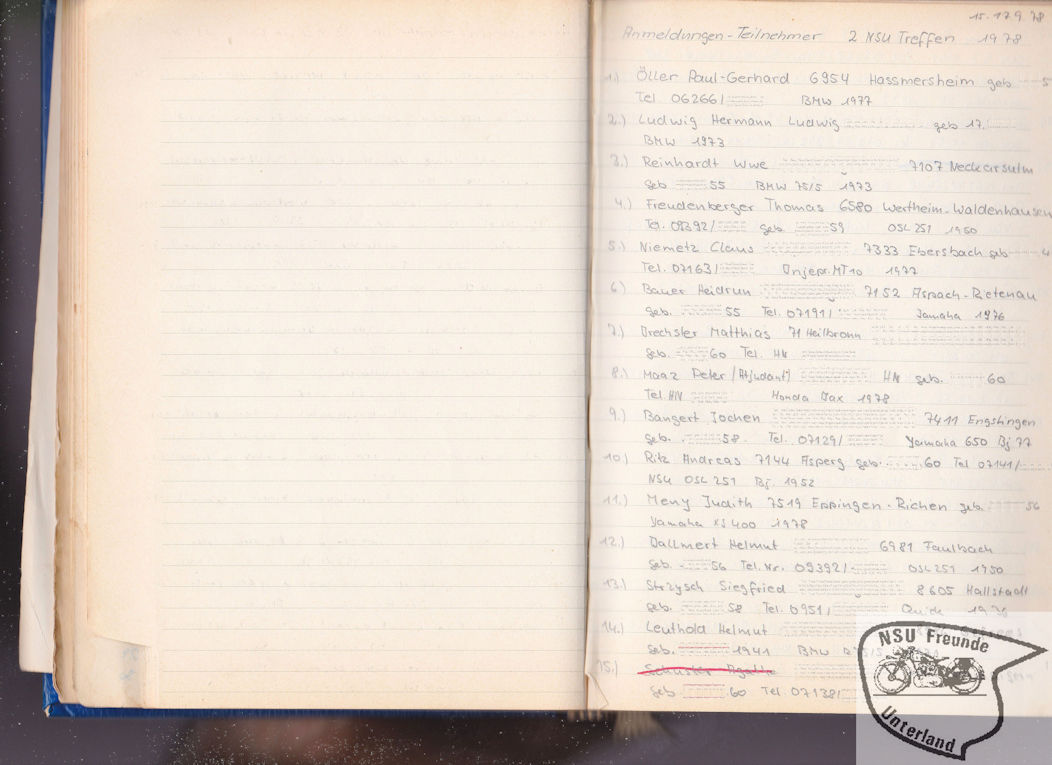 15.-17.9.78
Anmeldungen-Teilnehmer 2 NSU Treffen 1978
1.) Öller Paul-Gerhard 6954 Hassmersheim geb 5
Tel 06266/ BMW 1977
2.) Ludwig Hermann Ludwig geb 17.
BMW 1973
3.) Reinhardt Uwe 7107 Neckarsulm
geb 55 BMW 75/5 1973
4.) Freudenberger Thomas 6580 Wertheim-Waldenhausen
Tel. 09392/ geb. 59 OSL 251 1950
5.) Niemetz Claus 7333 Ebersbach geb 4
Tel. 07163/ Dnjepr.MT10 1977
6.) Bauer Heidrun 7152 Aspach-Rietenau
geb. 55 Tel. 07191/ Yamaha 1976
7.) Drechsler Matthias 71 Heilbronn
geb. 60 Tel. HN
8.) Maaz Peter (Adjudant) HN geb. 60
Tel. HN Honda Dax 1978
9.) Bangert Jochen 7411 Engstingen
geb. 58. Tel. 07129/ Yamaha 650 Bj 77
10.) Ritz Andreas 7144 Asperg geb. 60 Tel 07141/
NSU OSL 251 Bj. 1952
11.) Meny Judith 7519 Eppingen-Richen geb. 56
Yamaha XS 400 1978
12.) Dallmert Helmut 6981 Faulbach
geb. 56 Tel.Nr. 09392/ OSL 251 1950
13.) Strzysch Siegfried 8605 Hallstadt
geb. 58 Tel. 0951/ Quick 1936
14.) Leuthold Helmut
geb. 1941 BMW
15.) Schuster
geb 60 Tel 07138/
NSU Freunde
Unterland